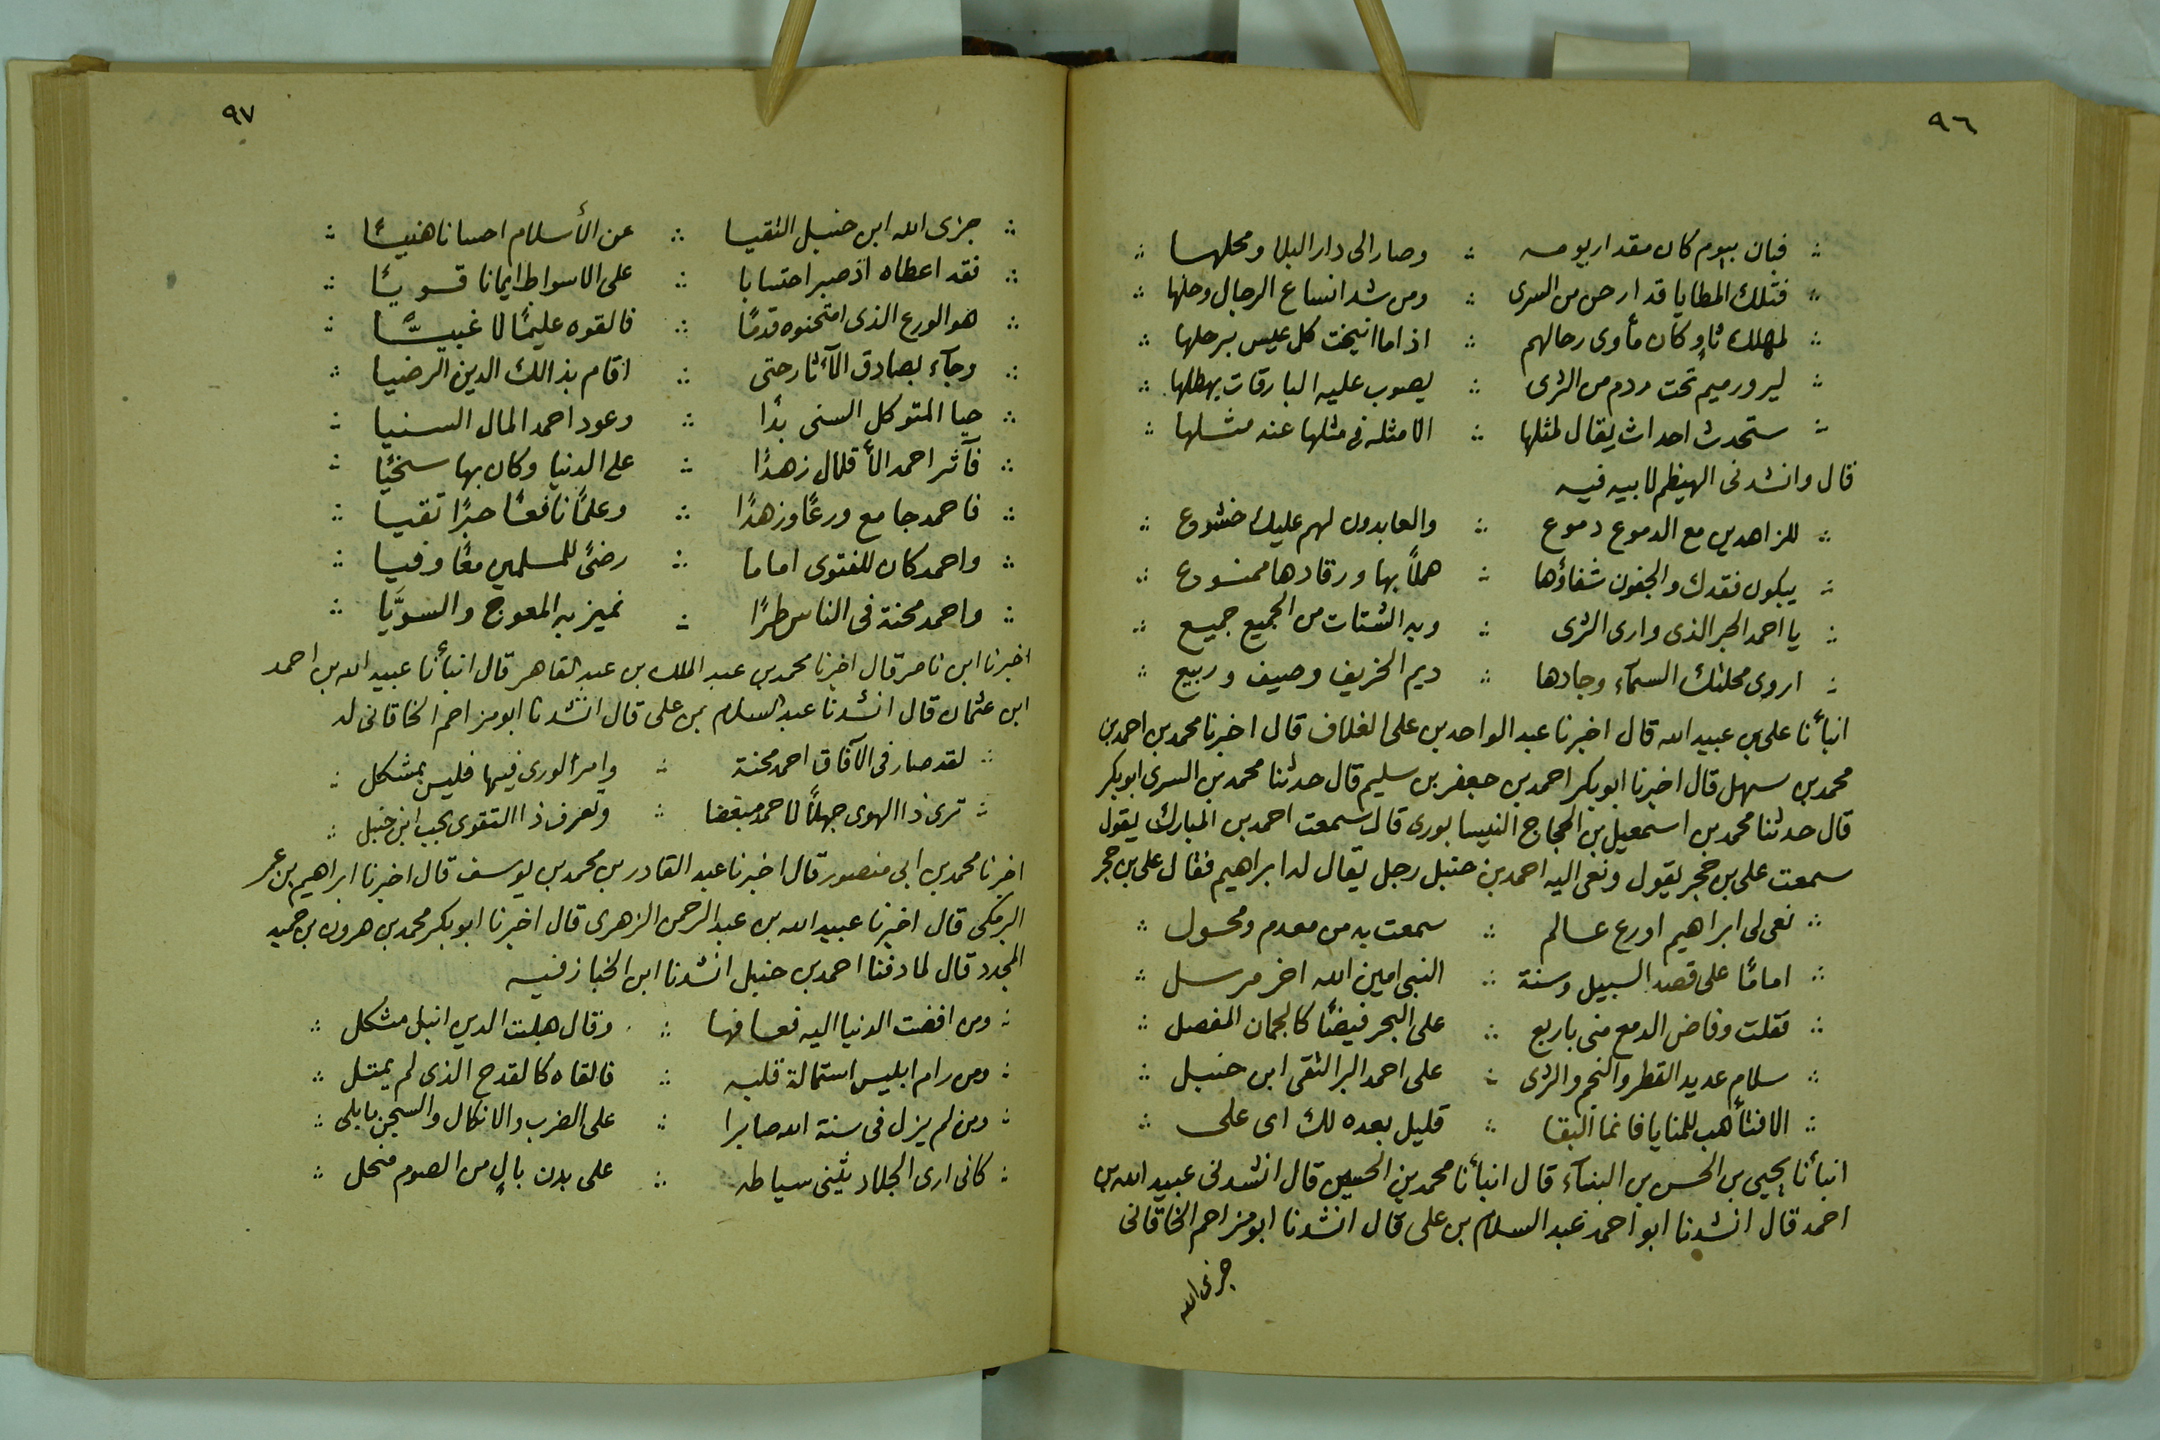 ٩٦
فبان بيوم كان مقدار يومه ∴ وصار الى دار البلا ومحلها ∴
فتلك المطايا قد ارحن من السرى ∴ ومن شد انساع الرجال وحلها ∴
لمهلك ثاوٍ كان مأوى رحالهم ∴ اذا ما انيخت كل عيس برحلها ∴
ورميم تحت ردم من الثرى ∴ يصوب عليه البارقات بهطلها ∴
ستحدث احداث يقال لمثلها ∴ الا مثله فى مثلها عند مثلها ∴
قال وانشدنى الهيظم لابيه فيه
للزاهدين مع الدموع دموع ∴ والعابدون لهم عليك خشوع ∴
يبكون فقدك والجفون شفاؤها ∴ هملاً بها ورقادها ممنوع ∴
يا احمد الحبر الذى وارى الثرى ∴ وبه الشتات من الجميع جميع ∴
اروى محلتك السمآء وجادها ∴ ديم الخريف وصيف وربيع ∴
انبأنا على بن عبيد الله قال اخبرنا عبد الواحد بن على العلاف قال اخبرنا محمد بن احمد بن
محمد بن سهل قال اخبرنا ابو بكر احمد بن جعفر بن سليم قال حدثنا محمد بن السرى ابو بكر
قال حدثنا محمد بن اسمعيل بن الحجاج النيسابورى قال سمعت احمد بن المبارك يقول
سمعت على بن حجر يقول ونعى اليه احمد بن حنبل رجل يقال له ابراهيم فقال على بن حجر
نعى لى ابراهيم اورع عالم ∴ سمعت به من معدم ومحول ∴
امامًا على قصد السبيل وسنة ∴ النبى امين الله اخر مرسل ∴
فقلت وفاض الدمع منى باربع ∴ على النحر فيضًا كالجمان المفصل ∴
سلام عديد القطر والنجم والثرى ∴ على احمد البر التقى ابن حنبل ∴
الا فتأهب للمنايا فانما البقا ∴ قليل بعده لك اى على ∴
انبأنا يحيى بن الحسن بن البنآء قال انبأنا محمد بن الحسين قال انشدنى عبيد الله بن
احمد قال انشدنا ابو احمد عبد السلام بن على قال انشدنا ابو مزاحم الخاقانى
جزى الله
٩٧
∴ جزى الله ابن حنبل التقيا ∴ عن الأسلام احسانا هنيئًا ∴
∴ فقد اعطاه اذ صبر احتسابا ∴ على الاسواط ايمانا قويًا ∴
∴ هو الورع الذى امتحنوه قدمًا ∴ فالقوه عليمًا لا غبيًّا ∴
∴ وجآء بصادق الآثار حتى ∴ اقام بذالك الدين الرضيا ∴
∴ حبا المتوكل السنى بدًا ∴ وعود احمد المال السنيا ∴
∴ فآثر احمد الأقلال زهدًا ∴ على الدنيا وكان بها سخيًا ∴
∴ فاحمد جامع ورعًا وزهدًا ∴ وعلمًا نافعًا حبرًا تقيا ∴
∴ واحمد كان للفتوى اماما ∴ رضىً للمسلمين معًا وفيا ∴
∴ واحمد محنة فى الناس طرًا ∴ نميز به المعوج والسويَّا ∴
اخبرنا ابن ناصر قال اخبرنا محمد بن عبد الملك بن عبد القاهر قال انبأنا عبيد الله بن احمد
ابن عثمان قال انشدنا عبد السلام بن على قال انشدنا ابو مزاحم الخاقانى له
∴ لقد صار فى الآفاق احمد محنة ∴ وامر الورى فيها فليس بمشكل ∴
∴ ترى ذا الهوى جهلاً لاحمد مبغضا ∴ وتعرف ذا التقوى بحب ابن حنبل ∴
اخبرنا محمد بن ابى منصور قال اخبرنا عبد القادر بن محمد بن يوسف قال اخبرنا ابراهيم بن عمر
البرمكى قال اخبرنا عبيد الله بن عبد الرحمن الزهرى قال اخبرنا ابو بكر محمد بن هرون بن حميد
المجدد قال لما دفنا احمد بن حنبل انشدنا ابن الخبازفيه
∴ ومن افضت الدنيا اليه فعافها ∴ وقال هبلت الدين انبل مشكل ∴
∴ ومن رام ابليس استمالة قلبه ∴ فالقاه كالقدح الذى لم يمتل ∴
∴ ومن لم يزل فى سنة الله صابرا ∴ على الضرب والانكال والسجن بابلى ∴
∴ كانى ارى الجلاد يثنى سياطه ∴ على بدن بالٍ من الصوم منحل ∴